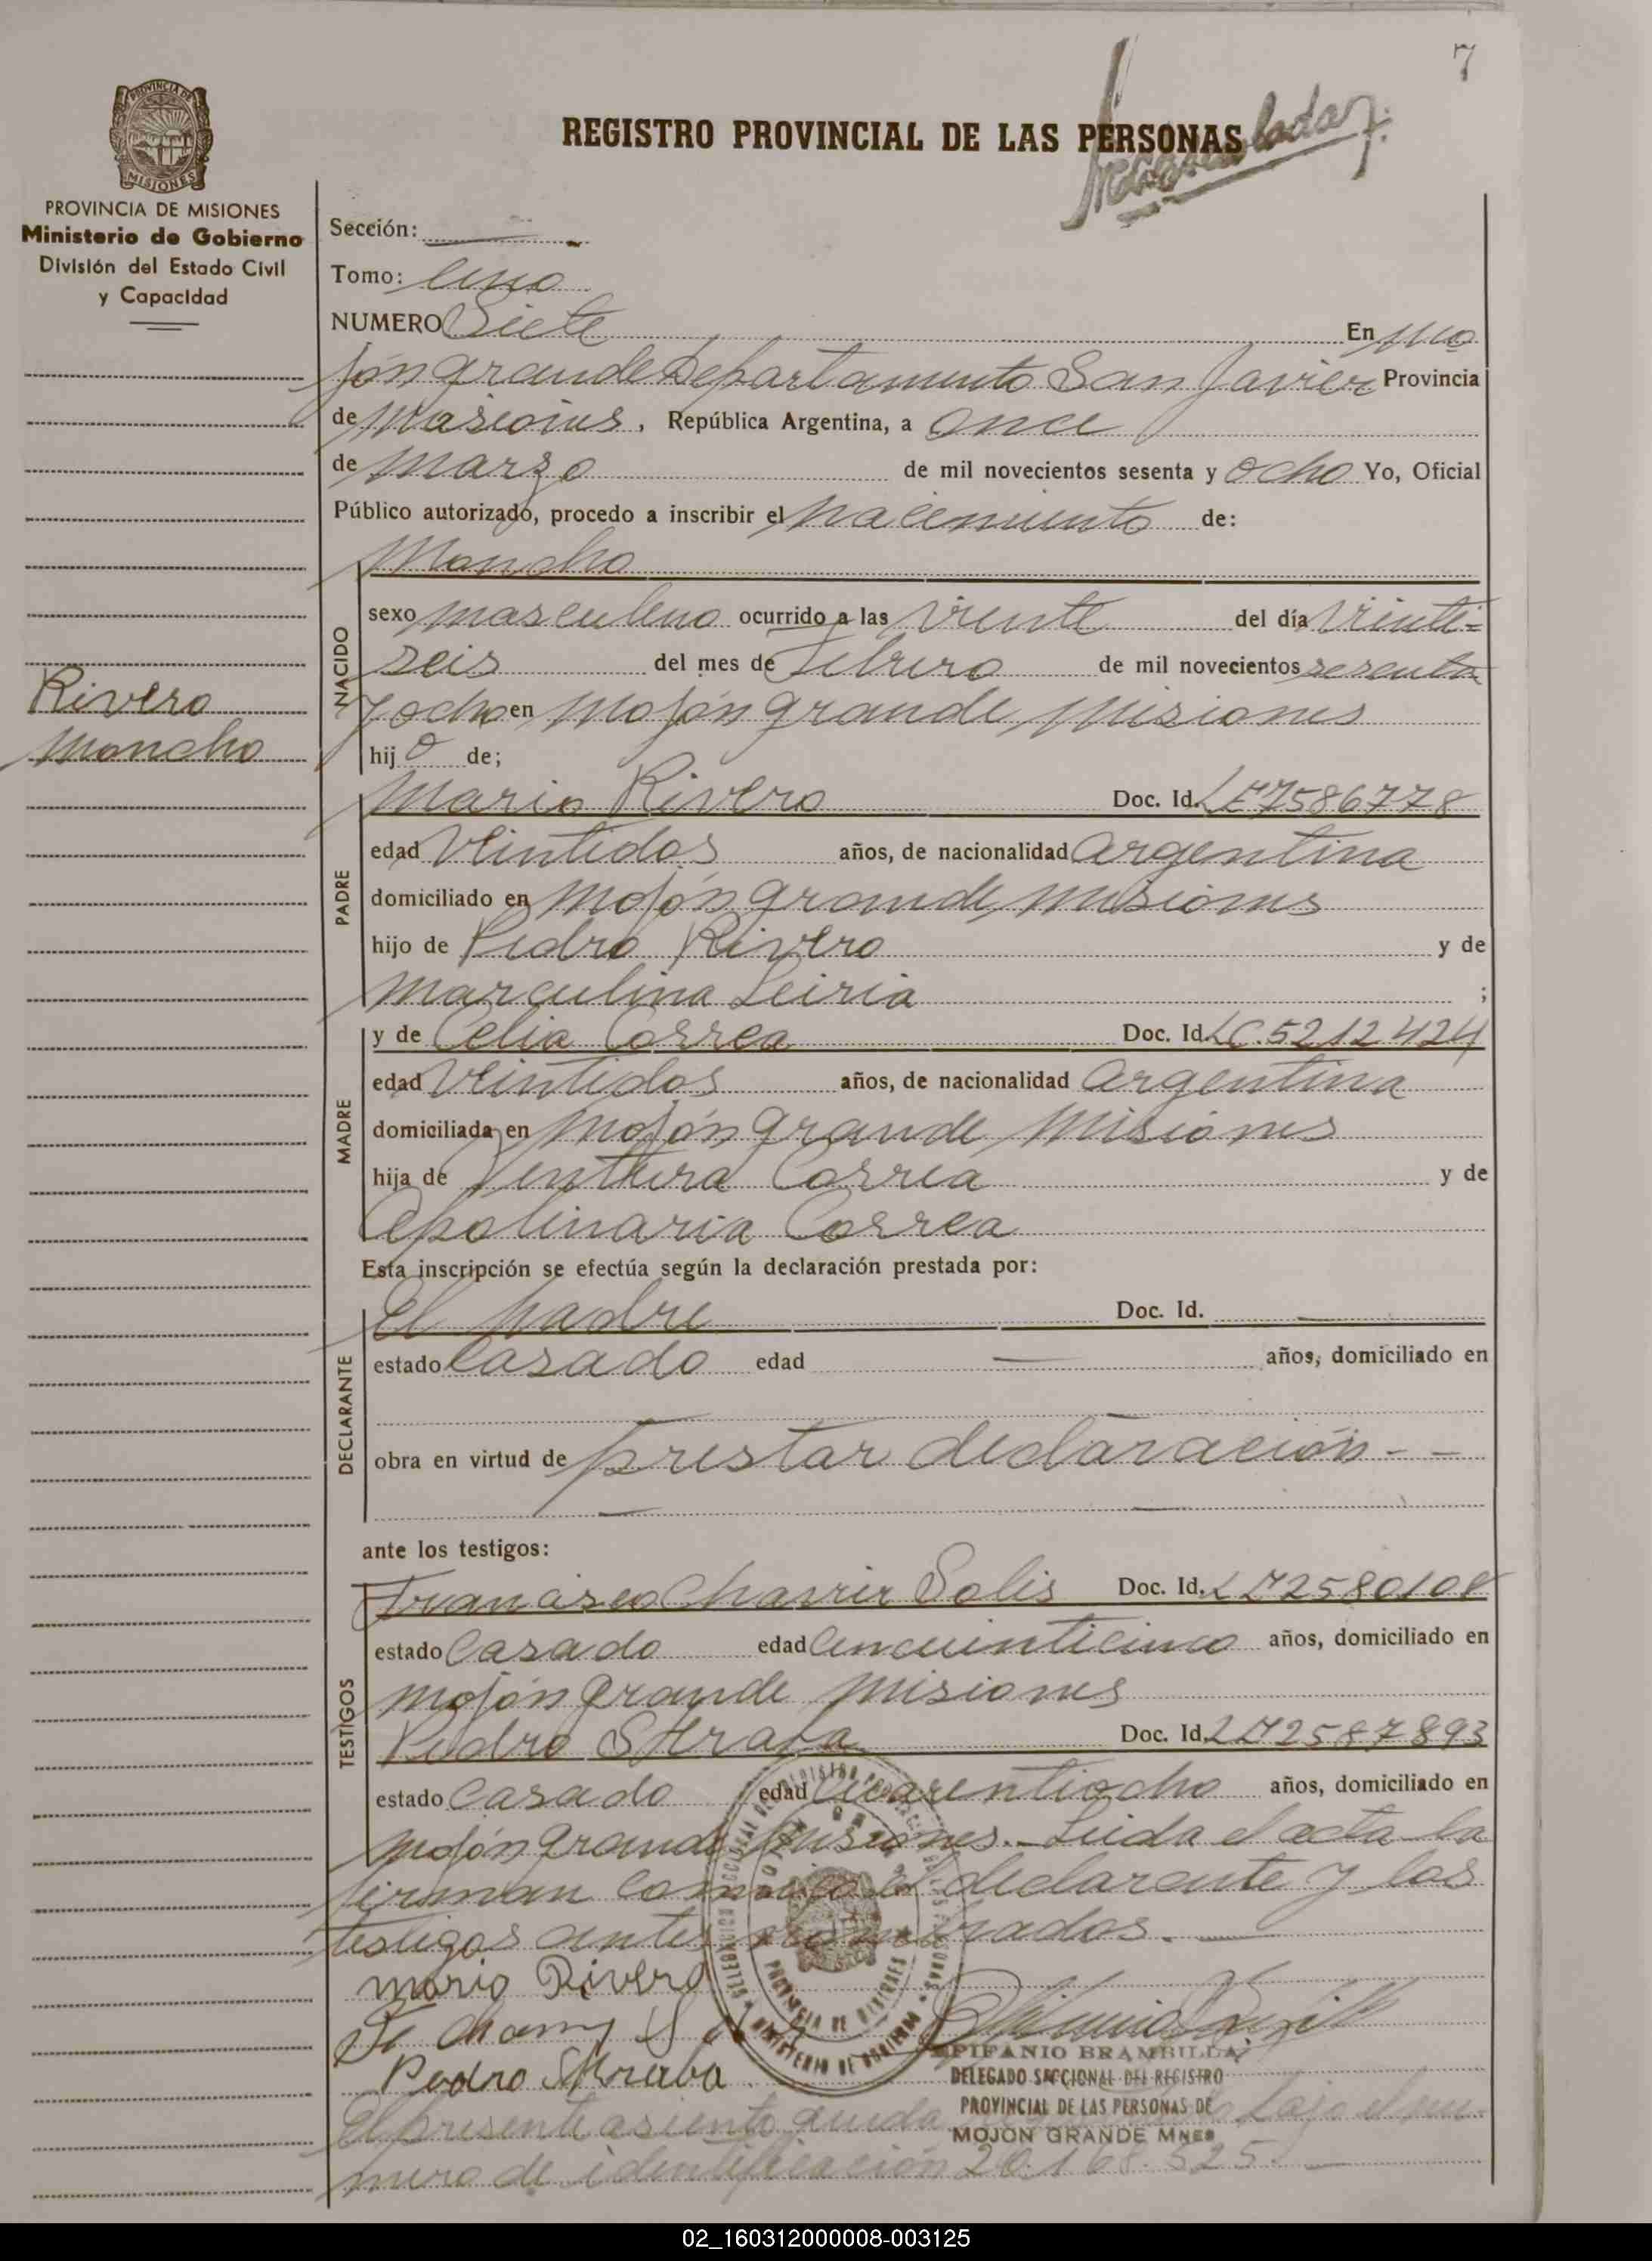 7
REGISTRO PROVINCIAL DE LAS PERSONAS
PROVINCIA DE
MISIONES
PROVINCIA DE MISIONES
Ministerio de Gobierno
División del Estado Civil
y Capacidad
Rivero
Moncho
Sección:
Tomo: Uno
NUMERO Siete En Mo
jón grande Departamento San Javier Provincia
de Misiones, República Argentina, a once
de Marzo de mil novecientos sesenta y ocho Yo, Oficial
Público autorizado, procedo a inscribir el nacimiento de:
Moncho
NACIDO
sexo masculino ocurrido a las veinte del día veinti-
seis del mes de Febrero de mil novecientos sesenta
y ocho en Mojón grande, Misiones
hijo de;
PADRE
Mario Rivero Doc. Id. LE7586778
edad veintidos años, de nacionalidad Argentina
domiciliado en Mojón grande, Misiones
hijo de Pedro Rivero y de
Marculina Leiria ;
MADRE
y de Celia Correa Doc. Id. LC.5212424
edad veintidos años, de nacionalidad Argentina
domiciliada en Mojón grande Misiones
hija de Ventura Correa y de
Apolinaria Correa
Esta inscripción se efectúa según la declaración prestada por:
DECLARANTE
El padre Doc. Id.
estado Casado edad — años, domiciliado en
obra en virtud de prestar declaración - -
ante los testigos:
TESTIGOS
Francisco Solis Doc. Id.
estado Casado edad Cincuenticinco años, domiciliado en
Mojón grande Misiones
Pedro Straba Doc. Id. 2587893
estado Casado edad cuarentiocho años, domiciliado en
Mojón grande Misiones.- Leida el acta la
firman conmigo el declarante y los
testigos antes nombrados. —
mario Rivero
Pedro Straba
EPIFANIO BRAMBILLA
DELEGADO SECCIONAL DEL REGISTRO
PROVINCIAL DE LAS PERSONAS DE
MOJON GRANDE MNES
PROVINCIA DE MISIONES
MINISTERIO DE GOBIERNO
El presente asiento queda bajo el nu-
mero de identificación 20.168.525.—
02_160312000008-003125